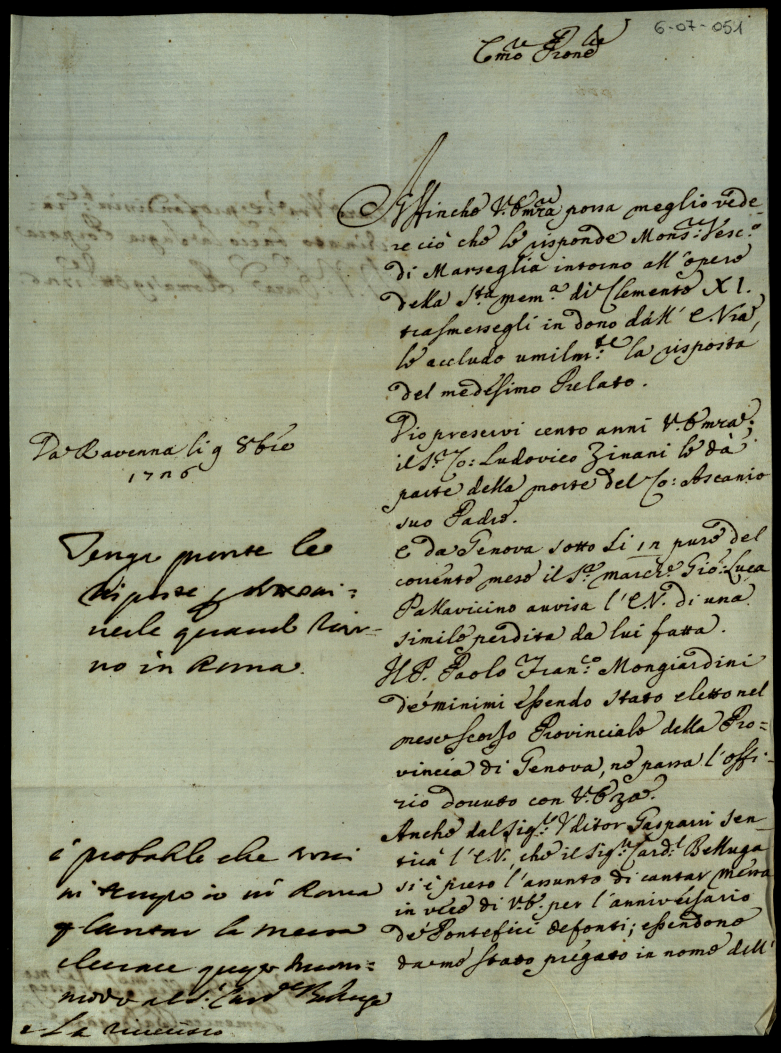 6-07-051
Em̃o Prone
Affinche V. Em̃za possa meglio vede-
re ciò che le risponde Mons.r Vesc.o
di Marseglia intorno all'opere
della S.ta mem.a di Clemente XI.
trasmessegli in dono dall'E.V.ra,
le accludo umilm.te la risposta
del medesimo Prelato.
Dio preservi cento anni V. Em̃za;
il S.r Co: Ludovico Zinani le dà
parte della morte del Co: Ascanio
suo Padre.
E da Genova sotto li 12 pure del
corrente mese il S.r March.e Gio: Luca
Pallavicino avvisa l'E.V. di una
simile perdita da lui fatta.
Il P. Paolo Fran.co Mongiardini
de' minimi essendo stato eletto nel
mese scorso Provinciale della Pro=
vincia di Genova, ne passa l'offi-
zio dovuto con V. Eza.
Anche dal Sig.r Uditor Gasparri sen-
tirà l'E.V. che il Sig.r Card.l Belluga
si è preso l'assunto di cantar messa
in vece di V.E. per l'anniversario
de' Pontefici defonti; essendone
da me stato pregato in nome dell'
Da Ravenna li 9 8bre
1726
Tenga pronte le
risposte
quand
no in Roma.
è probabile che
in tempo io in Roma
p cantar la messa
mo al S. Card.le Belluga